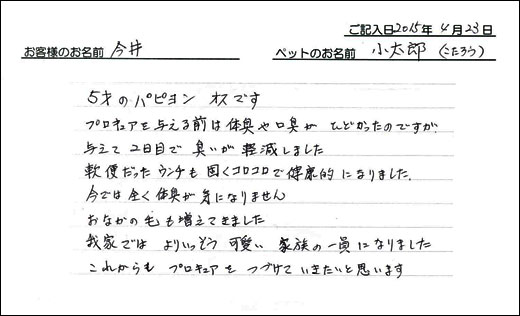 ご記入日2015年 4月23日
お客様のお名前 今井 ペットのお名前 小太郎 (こたろう)
5才のパピヨン オスです
プロキュアを与える前は体臭や口臭が ひどかったのですが
与えて 2日目で 臭いが 軽減しました
軟便だったウンチも 固くコロコロで健康的 になりました.
今では全く体臭が気になりません
おなかの毛も増えてきました
我家では よりいっそう 可愛い 家族の一員になりました
これからも プロキュアを つづけて いきたいと思います